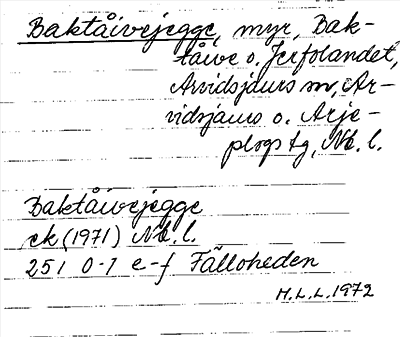 Baktåivejegge, myr, Bak-
tåive o. Jerfolandet,
Arvidsjaurs sn, Ar-
vidsjaurs o. Arje-
plogs tg, Nb. l.
Baktåivejegge
ek (1971) Nb. l.
25 I 0-1 e-f Fälloheden
H.L.L. 1972